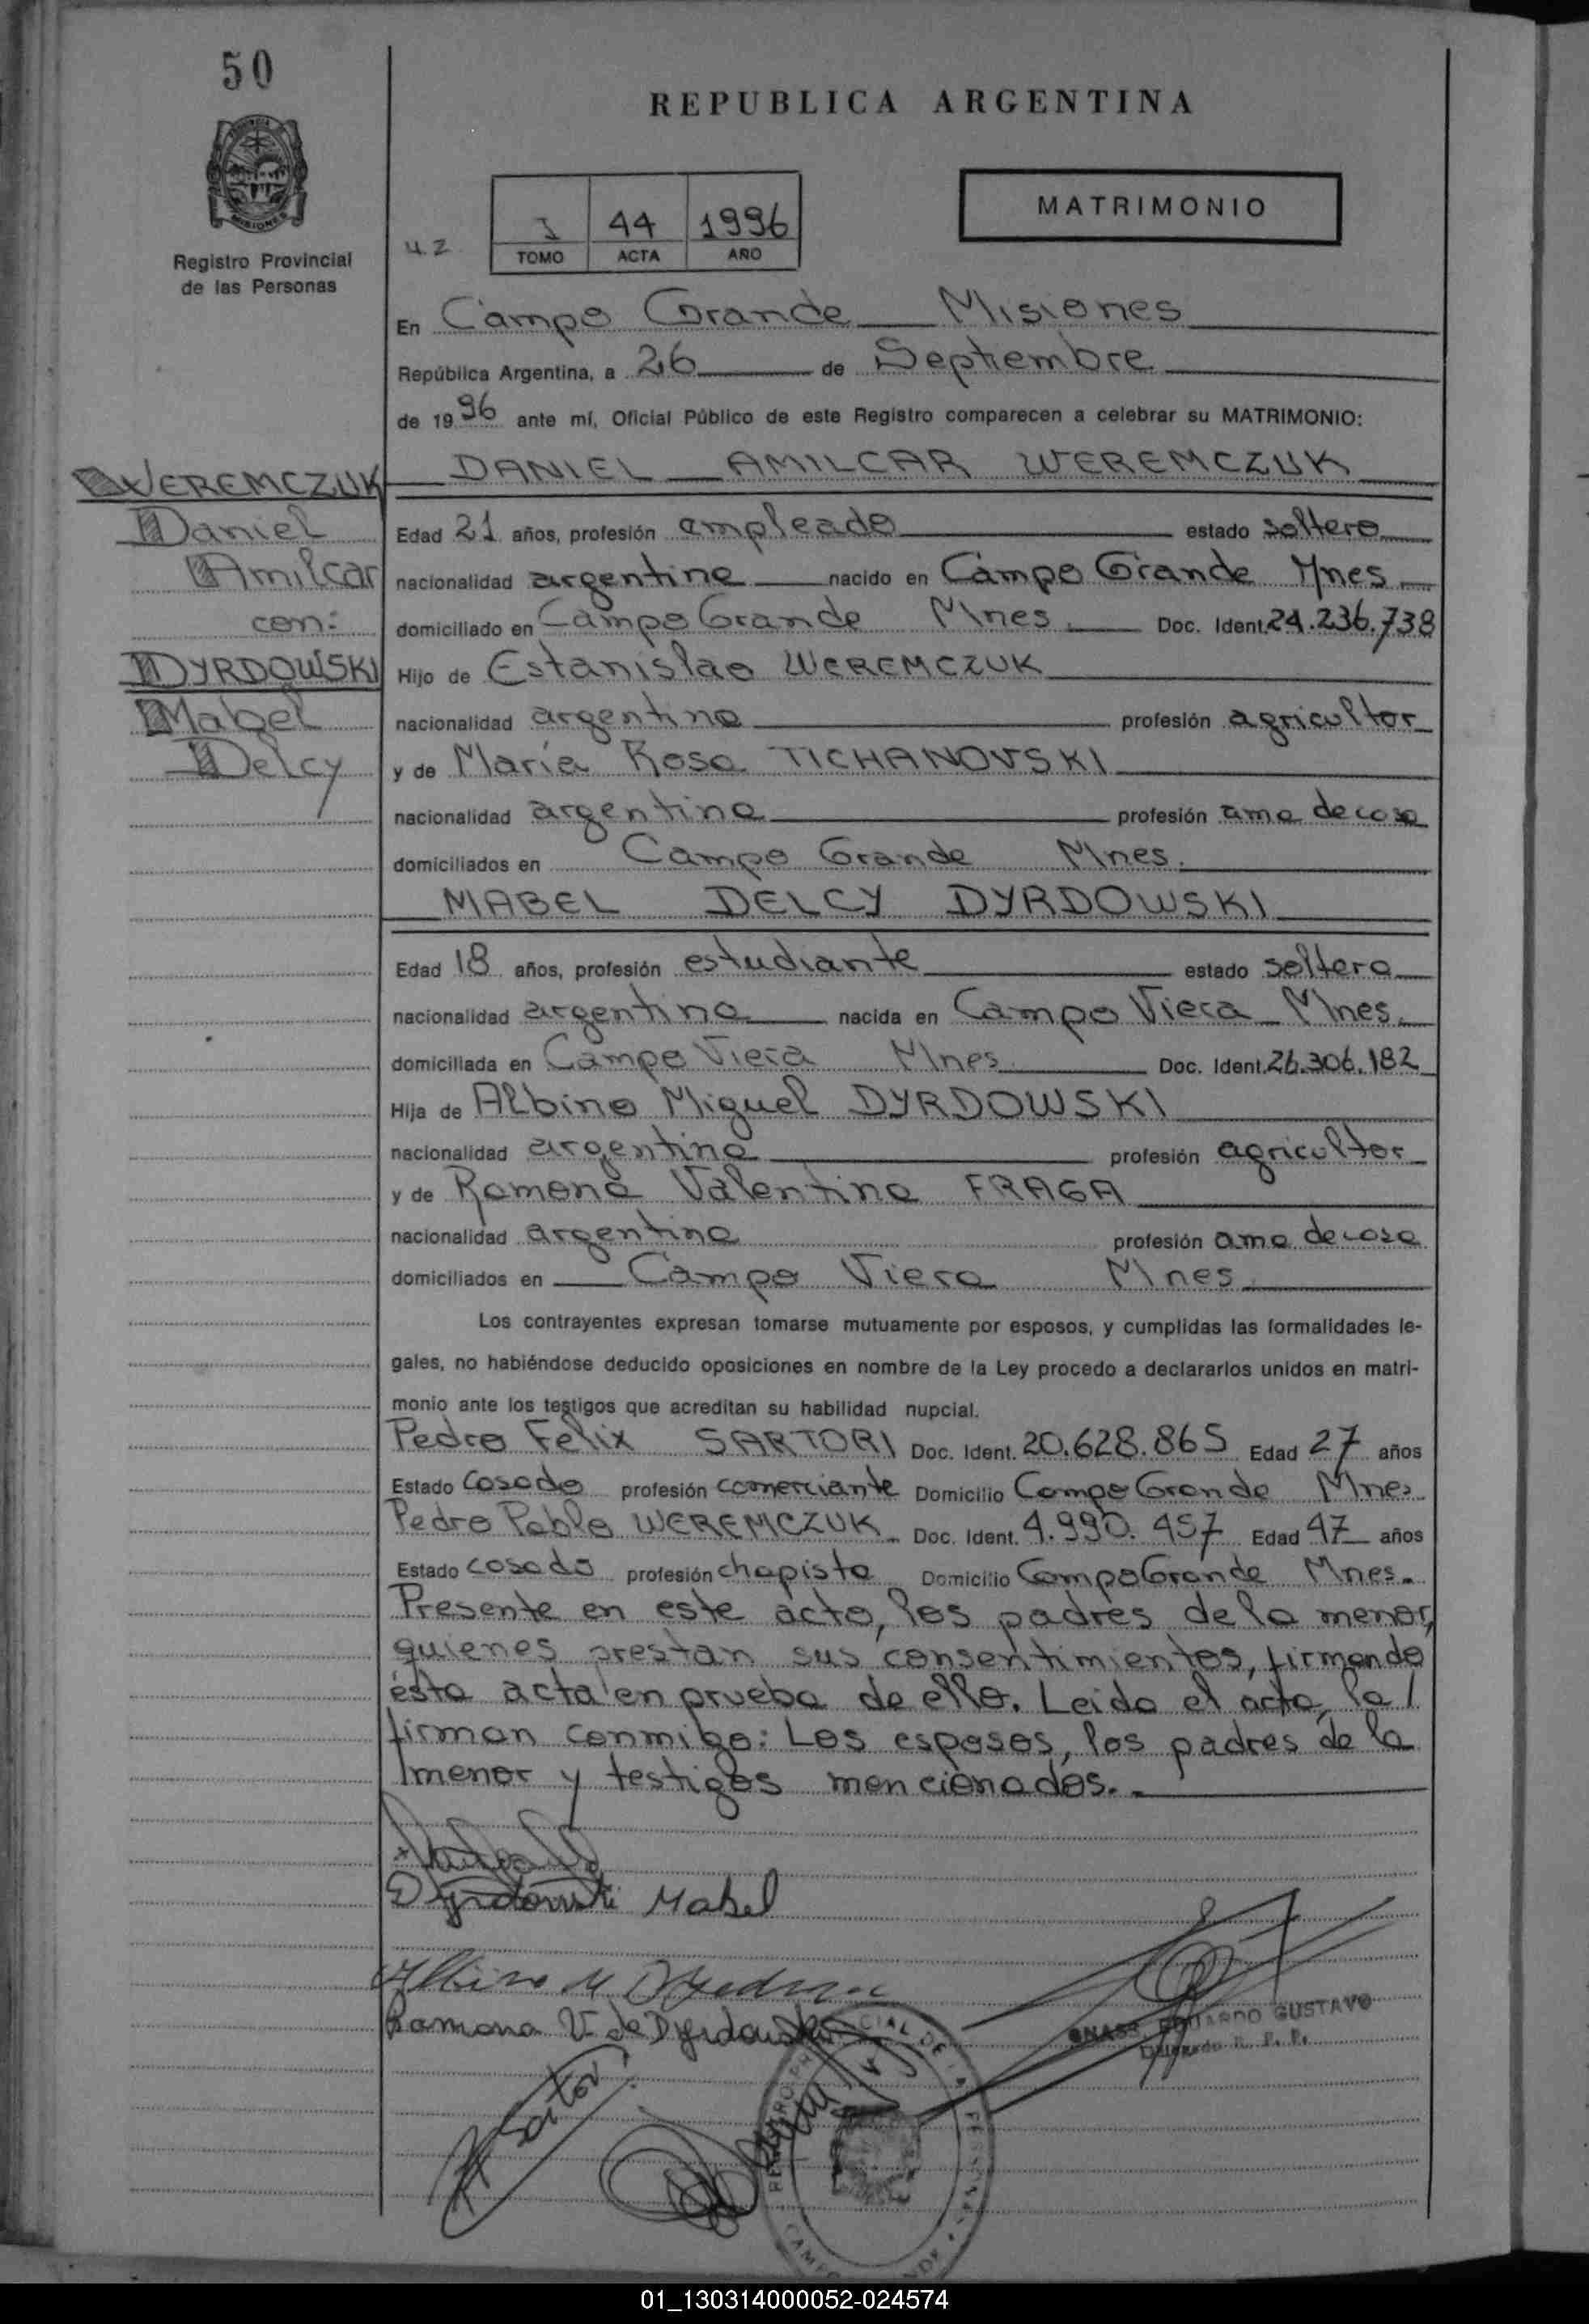 50
REPUBLICA ARGENTINA
MATRIMONIO
I 44 1996
TOMO ACTA AÑO
U.Z.
Registro Provincial
de las Personas
En Campo Grande Misiones
República Argentina, a 26 de Septiembre
de 1996 ante mí, Oficial Público de este Registro comparecen a celebrar su MATRIMONIO:
WEREMCZUK
Daniel
Amilcar
con:
DYRDOWSKI
Mabel
Delcy
DANIEL AMILCAR WEREMCZUK
Edad 21 años, profesión empleado estado soltero
nacionalidad argentino nacido en Campo Grande Mnes
domiciliado en Campo Grande Mnes. Doc. Ident. 24.236.738
Hijo de Estanislao WEREMCZUK
nacionalidad argentino profesión agricultor
y de María Rosa TICHANOVSKI
nacionalidad argentina profesión ama de casa
domiciliados en Campo Grande Mnes.
MABEL DELCY DYRDOWSKI
Edad 18 años, profesión estudiante estado soltera
nacionalidad argentina nacida en Campo Viera Mnes.
domiciliada en Campo Viera Mnes. Doc. Ident. 26.306.182
Hija de Albino Miguel DYRDOWSKI
nacionalidad argentino profesión agricultor
y de Ramona Valentina FRAGA
nacionalidad argentina profesión ama de casa
domiciliados en Campo Viera Mnes.
Los contrayentes expresan tomarse mutuamente por esposos, y cumplidas las formalidades le-
gales, no habiéndose deducido oposiciones en nombre de la Ley procedo a declararlos unidos en matri-
monio ante los testigos que acreditan su habilidad nupcial.
Pedro Felix SARTORI Doc. Ident. 20.628.865 Edad 27 años
Estado casado profesión comerciante Domicilio Campo Grande Mnes
Pedro Pablo WEREMCZUK Doc. Ident. 4.990.457 Edad 47 años
Estado casado profesión chapista Domicilio Campo Grande Mnes.
Presente en este acto, los padres de la menor,
quienes prestan sus consentimientos, firmando
ésta acta en prueba de ello. Leida el acta, la
firman conmigo: Los esposos, los padres de la
menor y testigos mencionados.
Dyrdowski Mabel
Albino M
Ramona V. de Dyrdowski
Sartori
EDUARDO GUSTAVO
Delegado R. P. P.
01_130314000052-024574